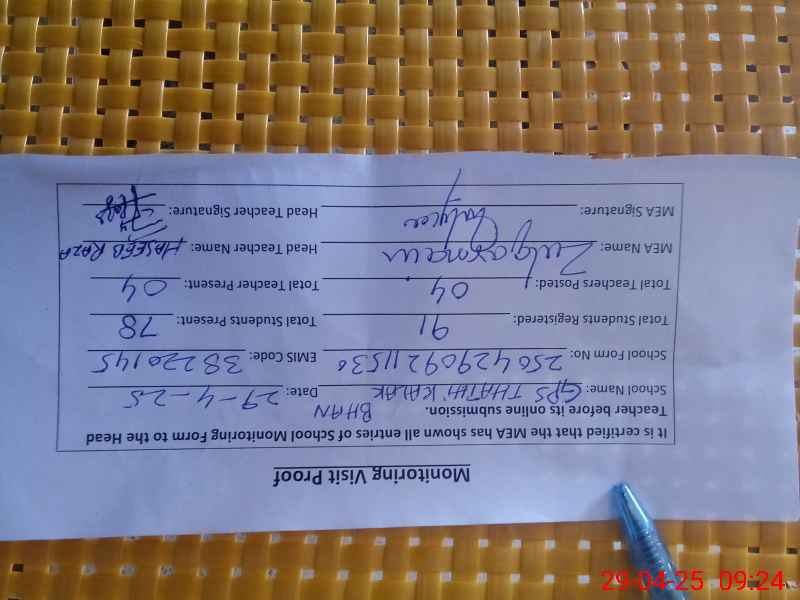 Monitoring Visit Proof
It is certified that the MEA has shown all entries of School Monitoring Form to the Head
Teacher before its online submission. BHAN
School Name: GPS THATHI KALAK Date: 29-4-25
School Form No: 2504290921153 EMIS Code: 38220145
Total Students Registered: 91 Total Students Present: 78
Total Teachers Posted: 04 Total Teacher Present: 04
MEA Name: Head Teacher Name: HASEEB RAZA
MEA Signature: Head Teacher Signature:
29-04-25 09:24